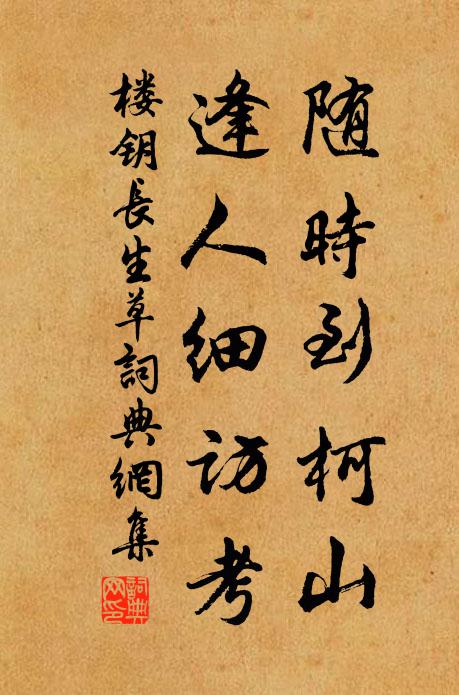 随時到柯山
逢人细访考
楼钥長生草詞典網集
詞典网印